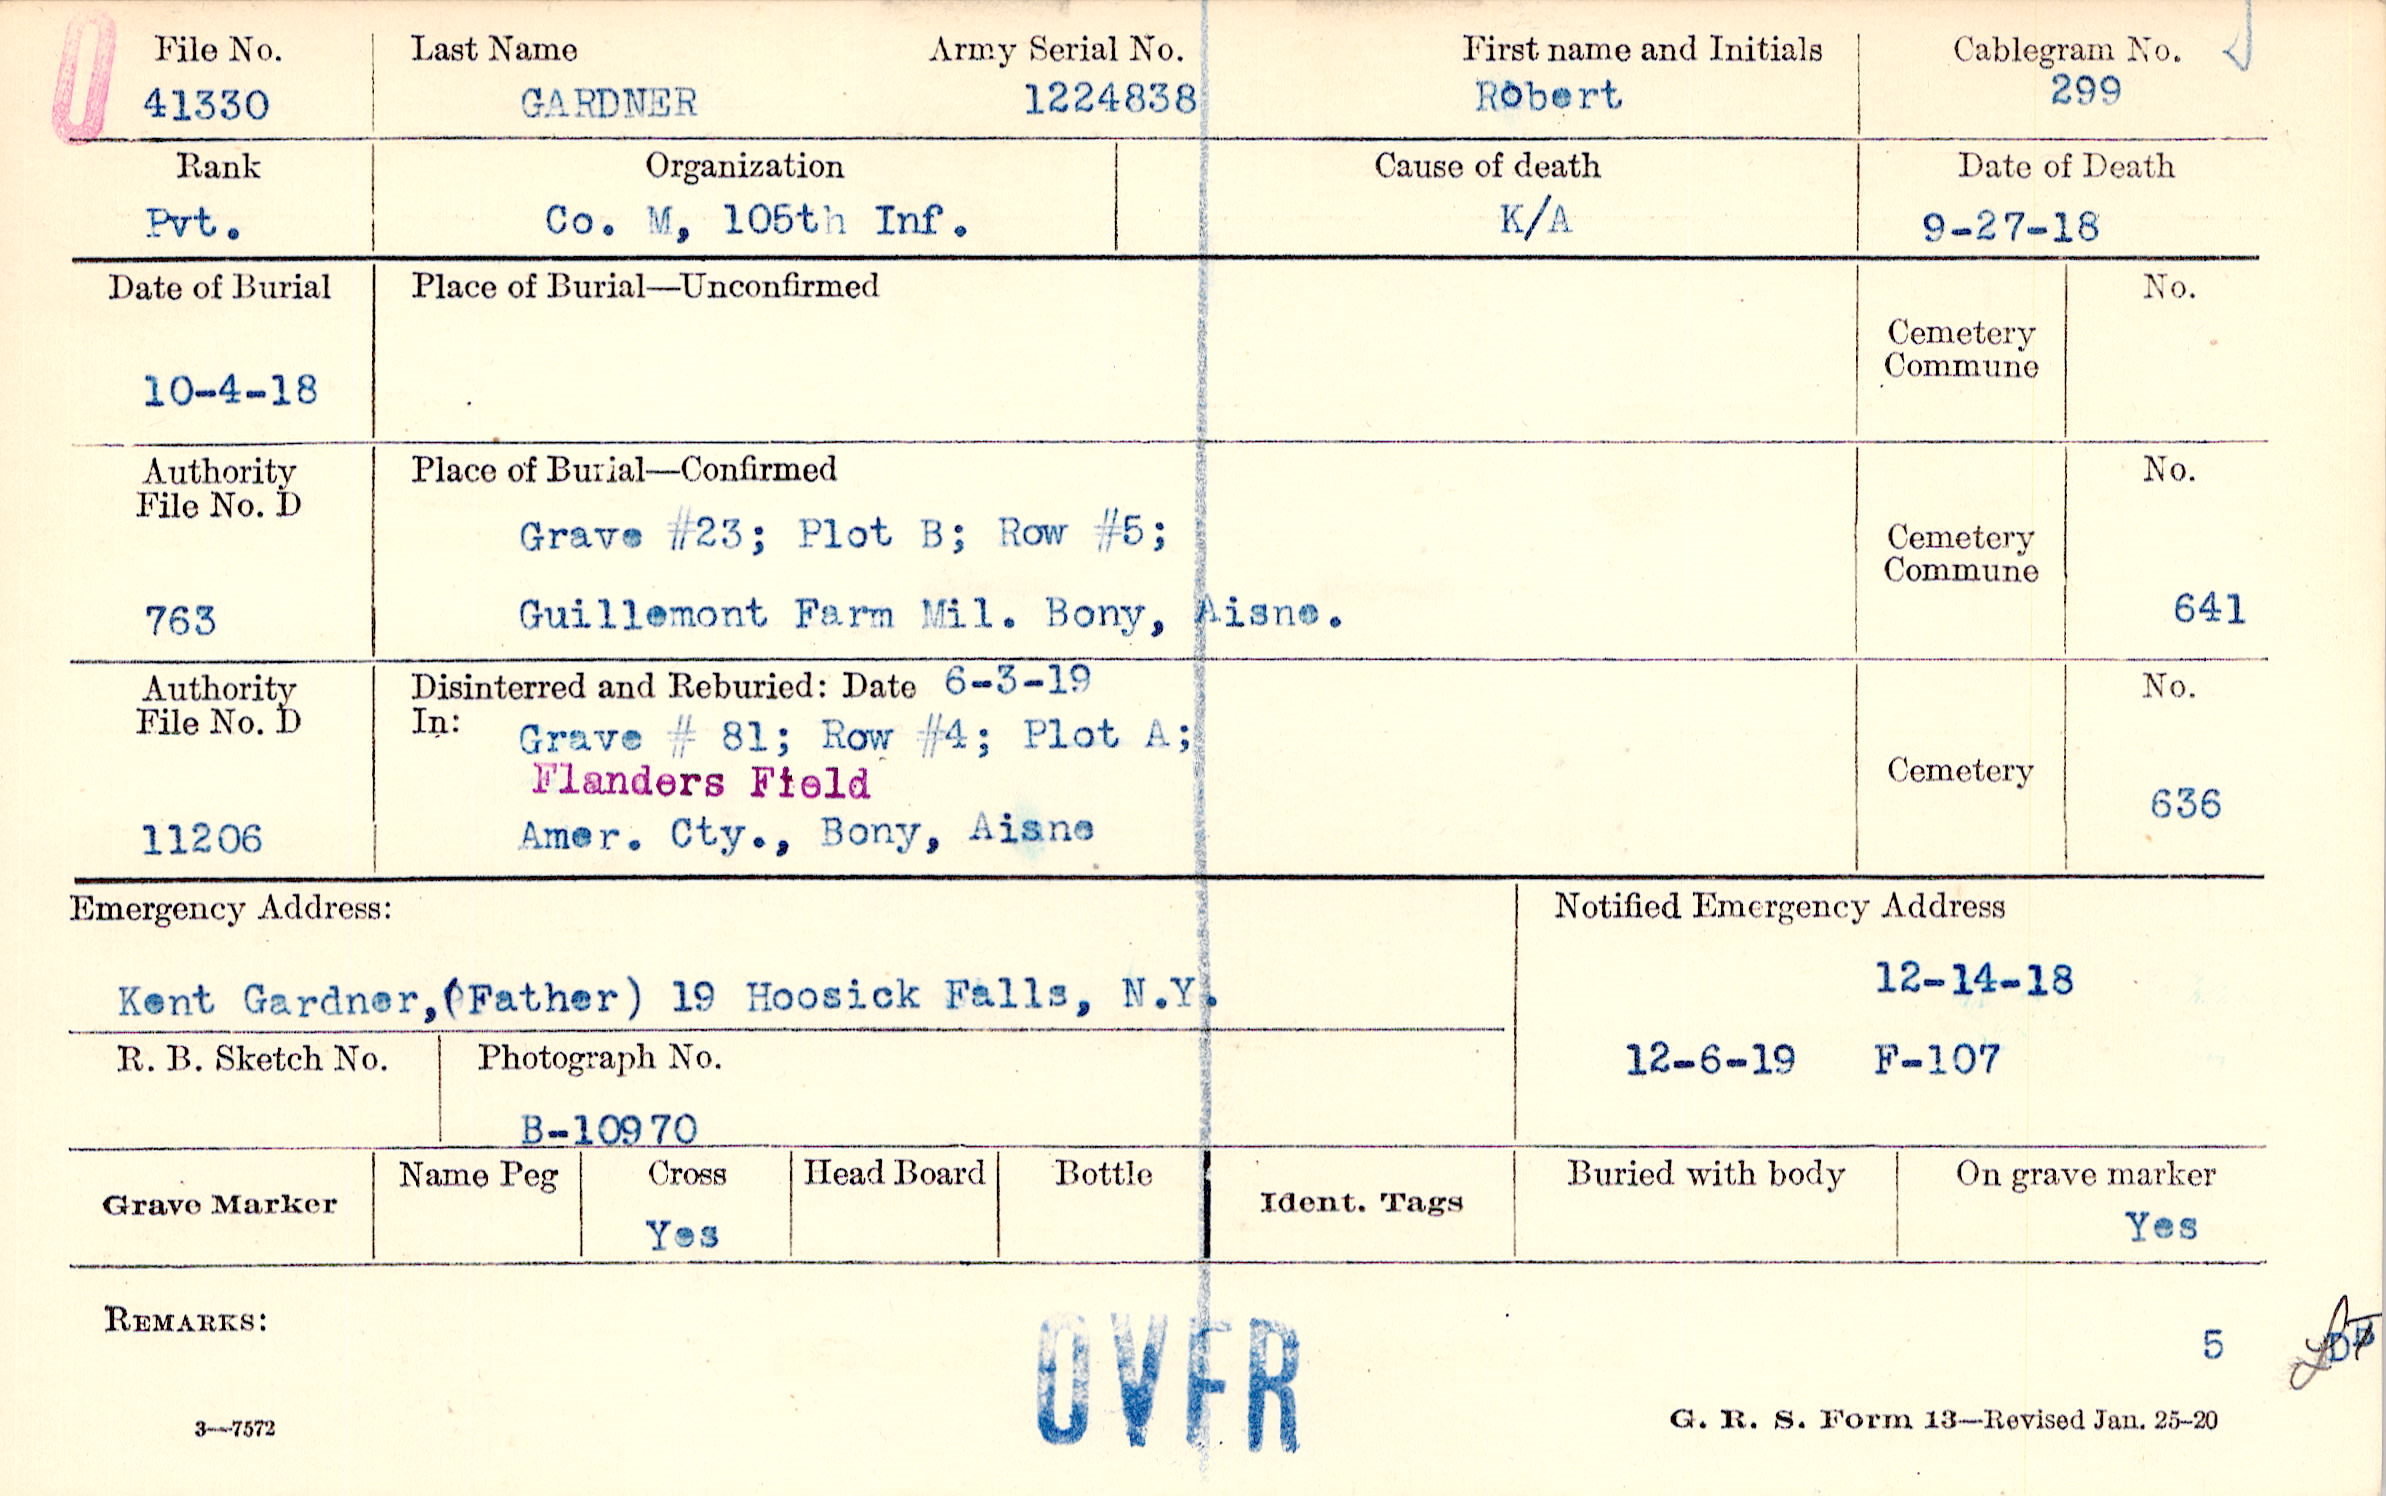 File No. Last Name Army Serial No. First name and Initials Cablegram No.
41330 GARDNER 1224838 Robert 299
Rank Organization Cause of death Date of Death
Pvt. Co. M, 105th Inf. K/A 9-27-18
Date of Burial Place of Burial—Unconfirmed No.
Cemetery
Commune
10-4-18
Authority Place of Burial—Confirmed No.
File No. D
Grave #23; Plot B; Row #5; Cemetery
Commune
763 Guillemont Farm Mil. Bony, Aisne. 641
Authority Disinterred and Reburied: Date 6-3-19 No.
File No. D In: Grave # 81; Row #4; Plot A;
Flanders Field Cemetery
11206 Amer. Cty., Bony, Aisne 636
Emergency Address: Notified Emergency Address
12-14-18
Kent Gardner,(Father) 19 Hoosick Falls, N.Y.
R. B. Sketch No. Photograph No. 12-6-19 F-107
B-10970
Grave Marker Name Peg Cross Head Board Bottle Ident. Tags Buried with body On grave marker
Yes Yes
REMARKS:
OVER
5
3—7572 G. R. S. Form 13—Revised Jan. 25-20